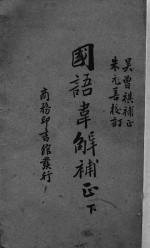 吳曾祺補正
朱元善校訂
國語韋解補正 下
商務印書館發行